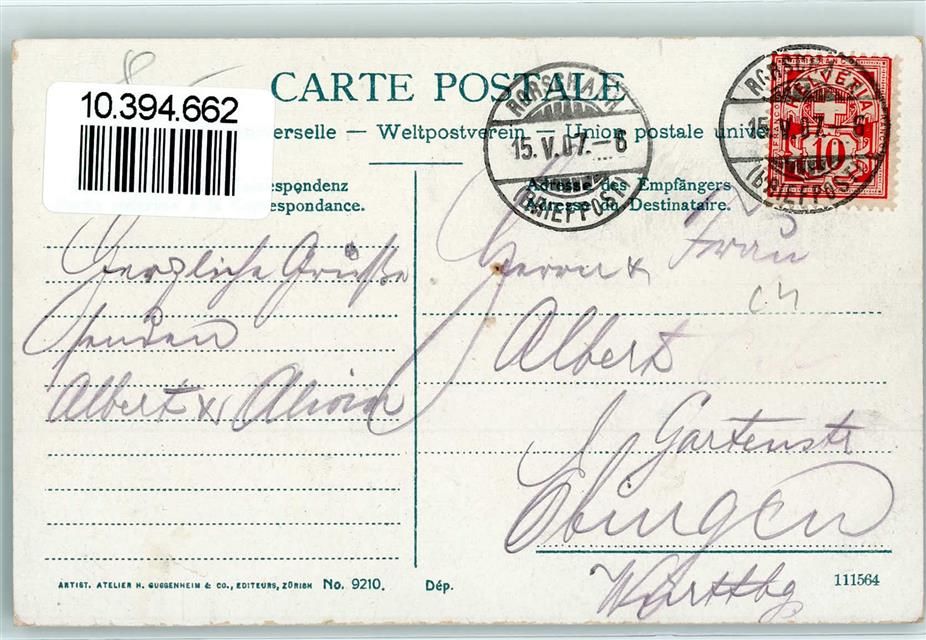 CARTE POSTALE
10.394.662
erselle — Weltpostverein — Union postale unive
espondenz
espondance.
Adresse des Empfängers
Adresse du Destinataire.
RORSCHACH
15.V.07.–6
(BRIEFPOST)
RORSCHACH
15.V.07.–6
(BRIEFPOST)
HELVETIA
10
Herzliche Grüße
senden
Albert &
Herrn & Frau
CH
Albert
Gartenstr
Ebingen
Württbg
ARTIST. ATELIER H. GUGGENHEIM & CO., EDITEURS, ZÜRICH No. 9210. Dép.
111564